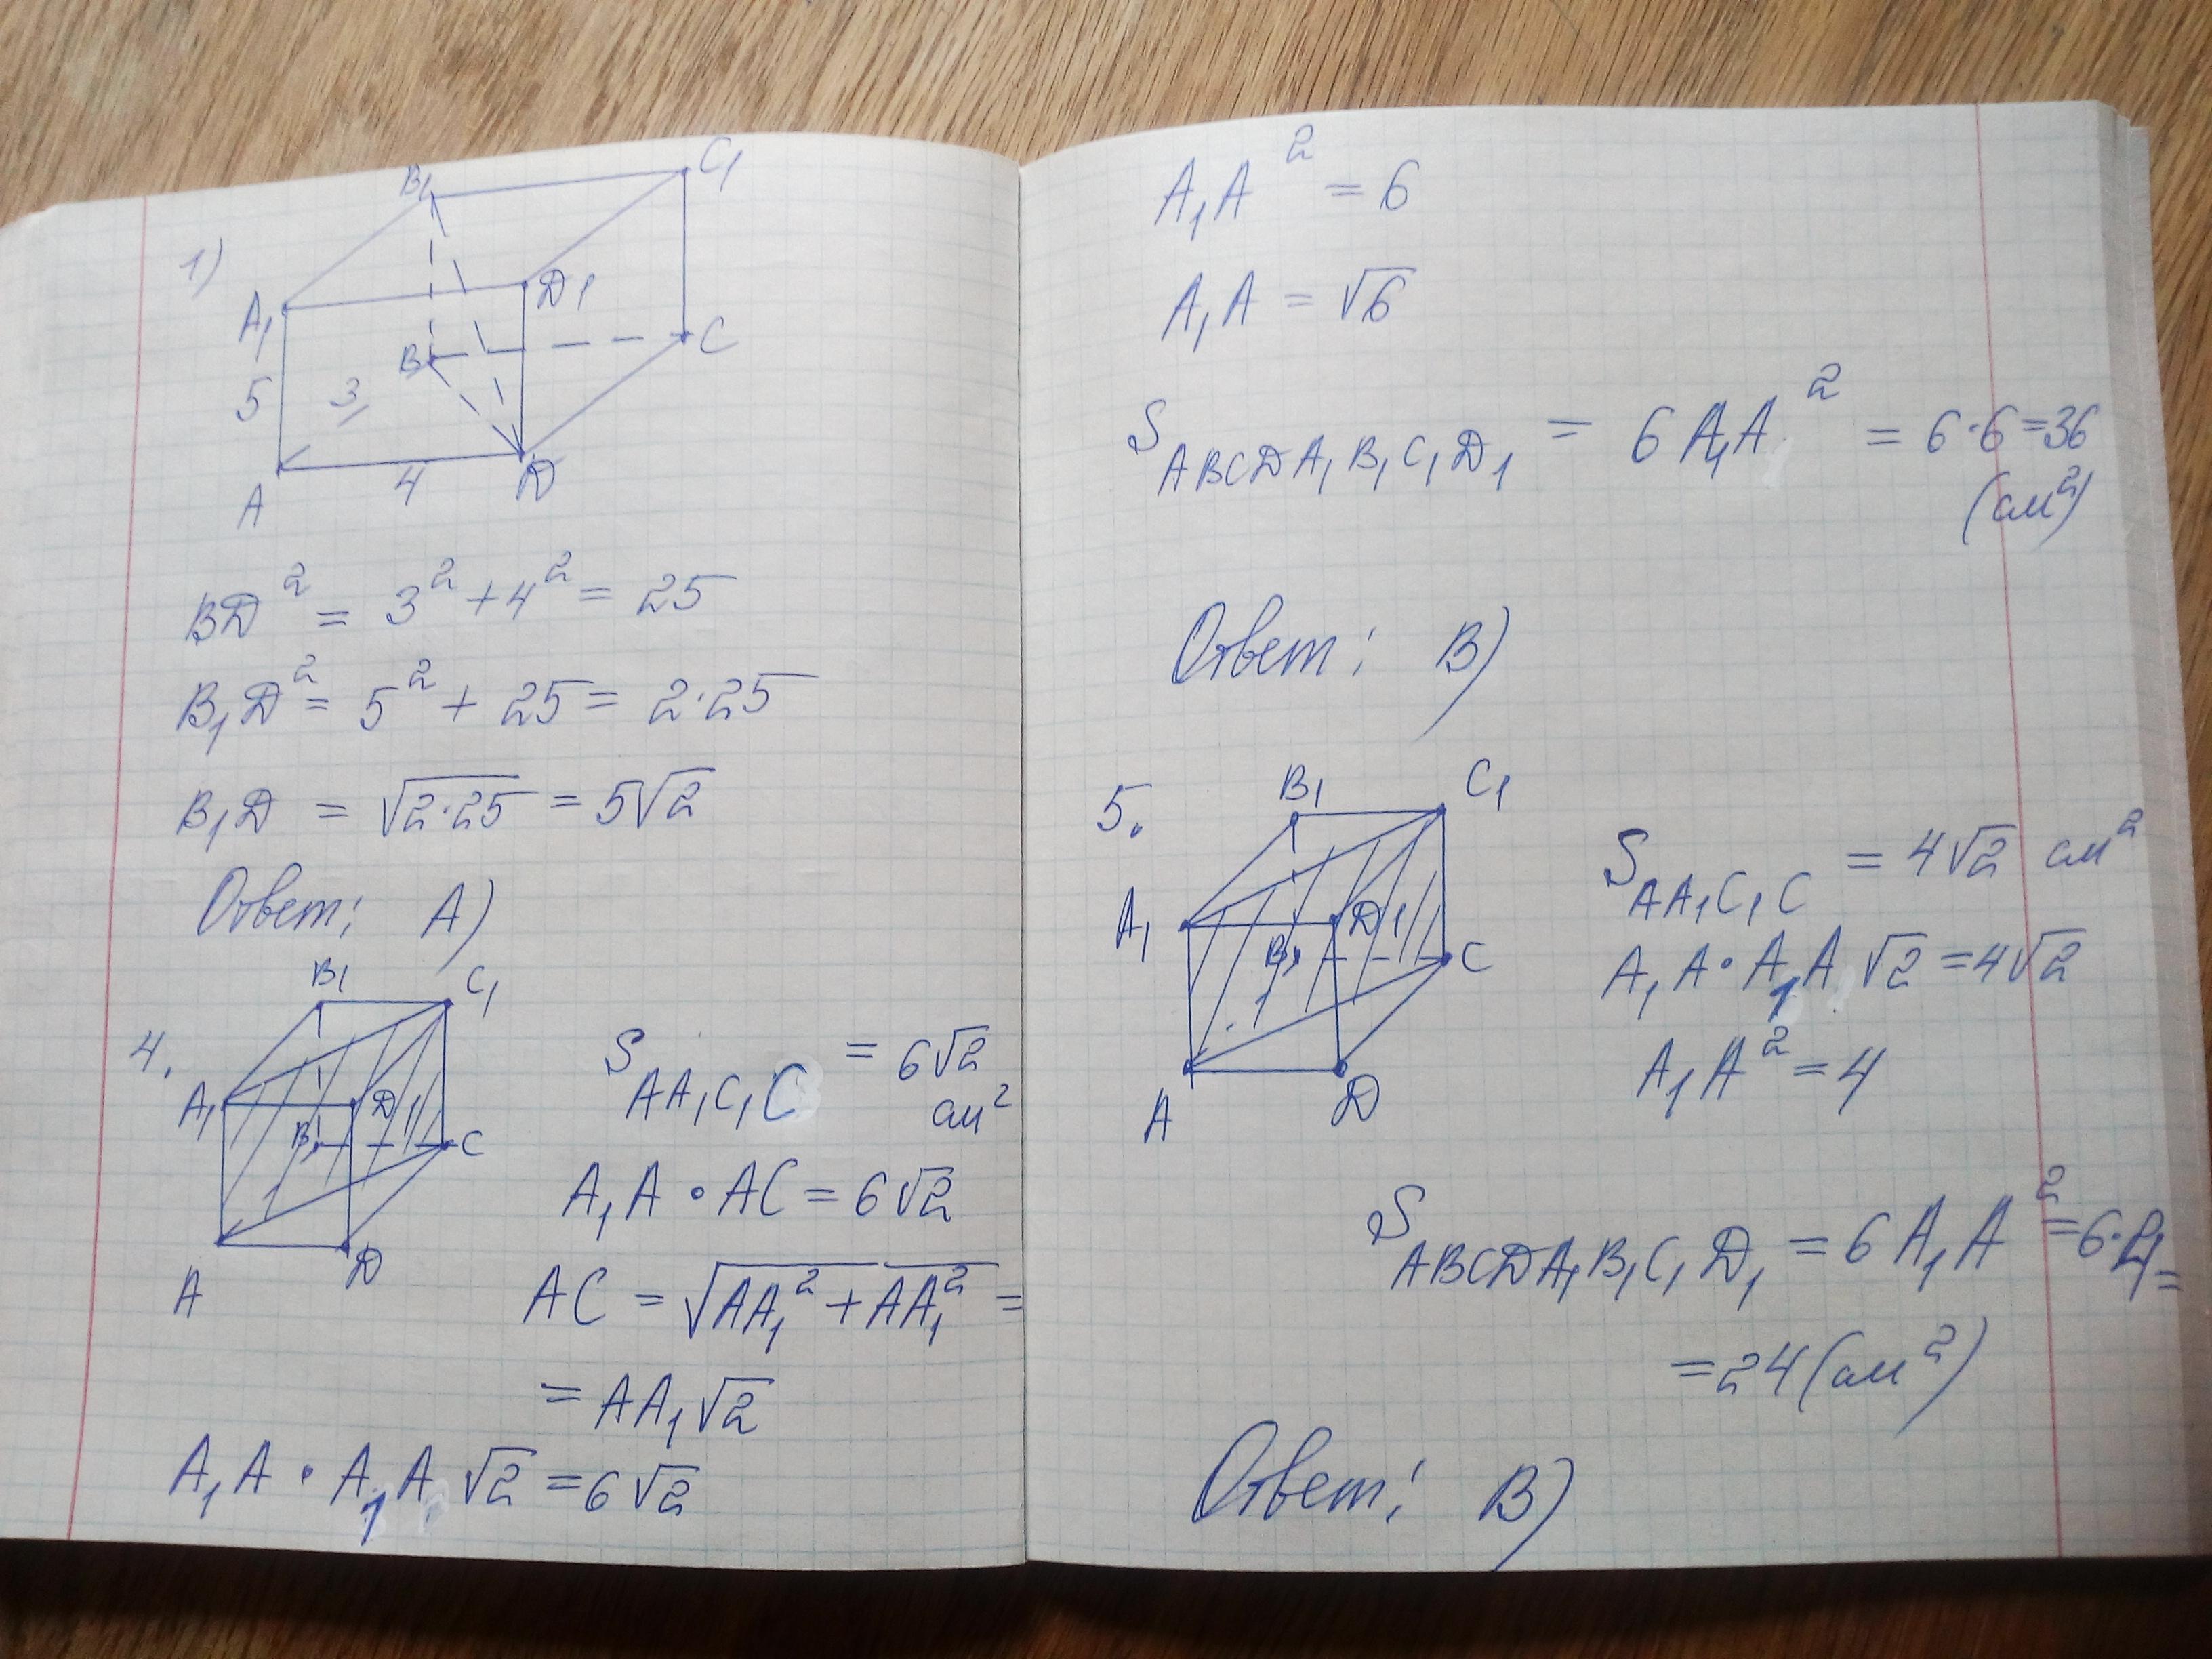 1)
B₁
C₁
A₁
D₁
5
3
B
C
A
4
D
BD² = 3² + 4² = 25
B₁D² = 5² + 25 = 2·25
B₁D = √2·25 = 5√2
Ответ: А)
4.
B₁
C₁
A₁
D₁
B
C
A
D
S AA₁C₁C = 6√2 см²
A₁A · AC = 6√2
AC = √AA₁² + AA₁² =
= AA₁√2
A₁A · A₁A √2 = 6√2
A₁A² = 6
A₁A = √6
S ABCDA₁B₁C₁D₁ = 6 A₁A² = 6·6 = 36
(см²)
Ответ: В)
5.
B₁
C₁
A₁
D₁
B
C
A
D
S AA₁C₁C = 4√2 см²
A₁A · A₁A √2 = 4√2
A₁A² = 4
S ABCDA₁B₁C₁D₁ = 6 A₁A² = 6·4 =
= 24 (см²)
Ответ: В)